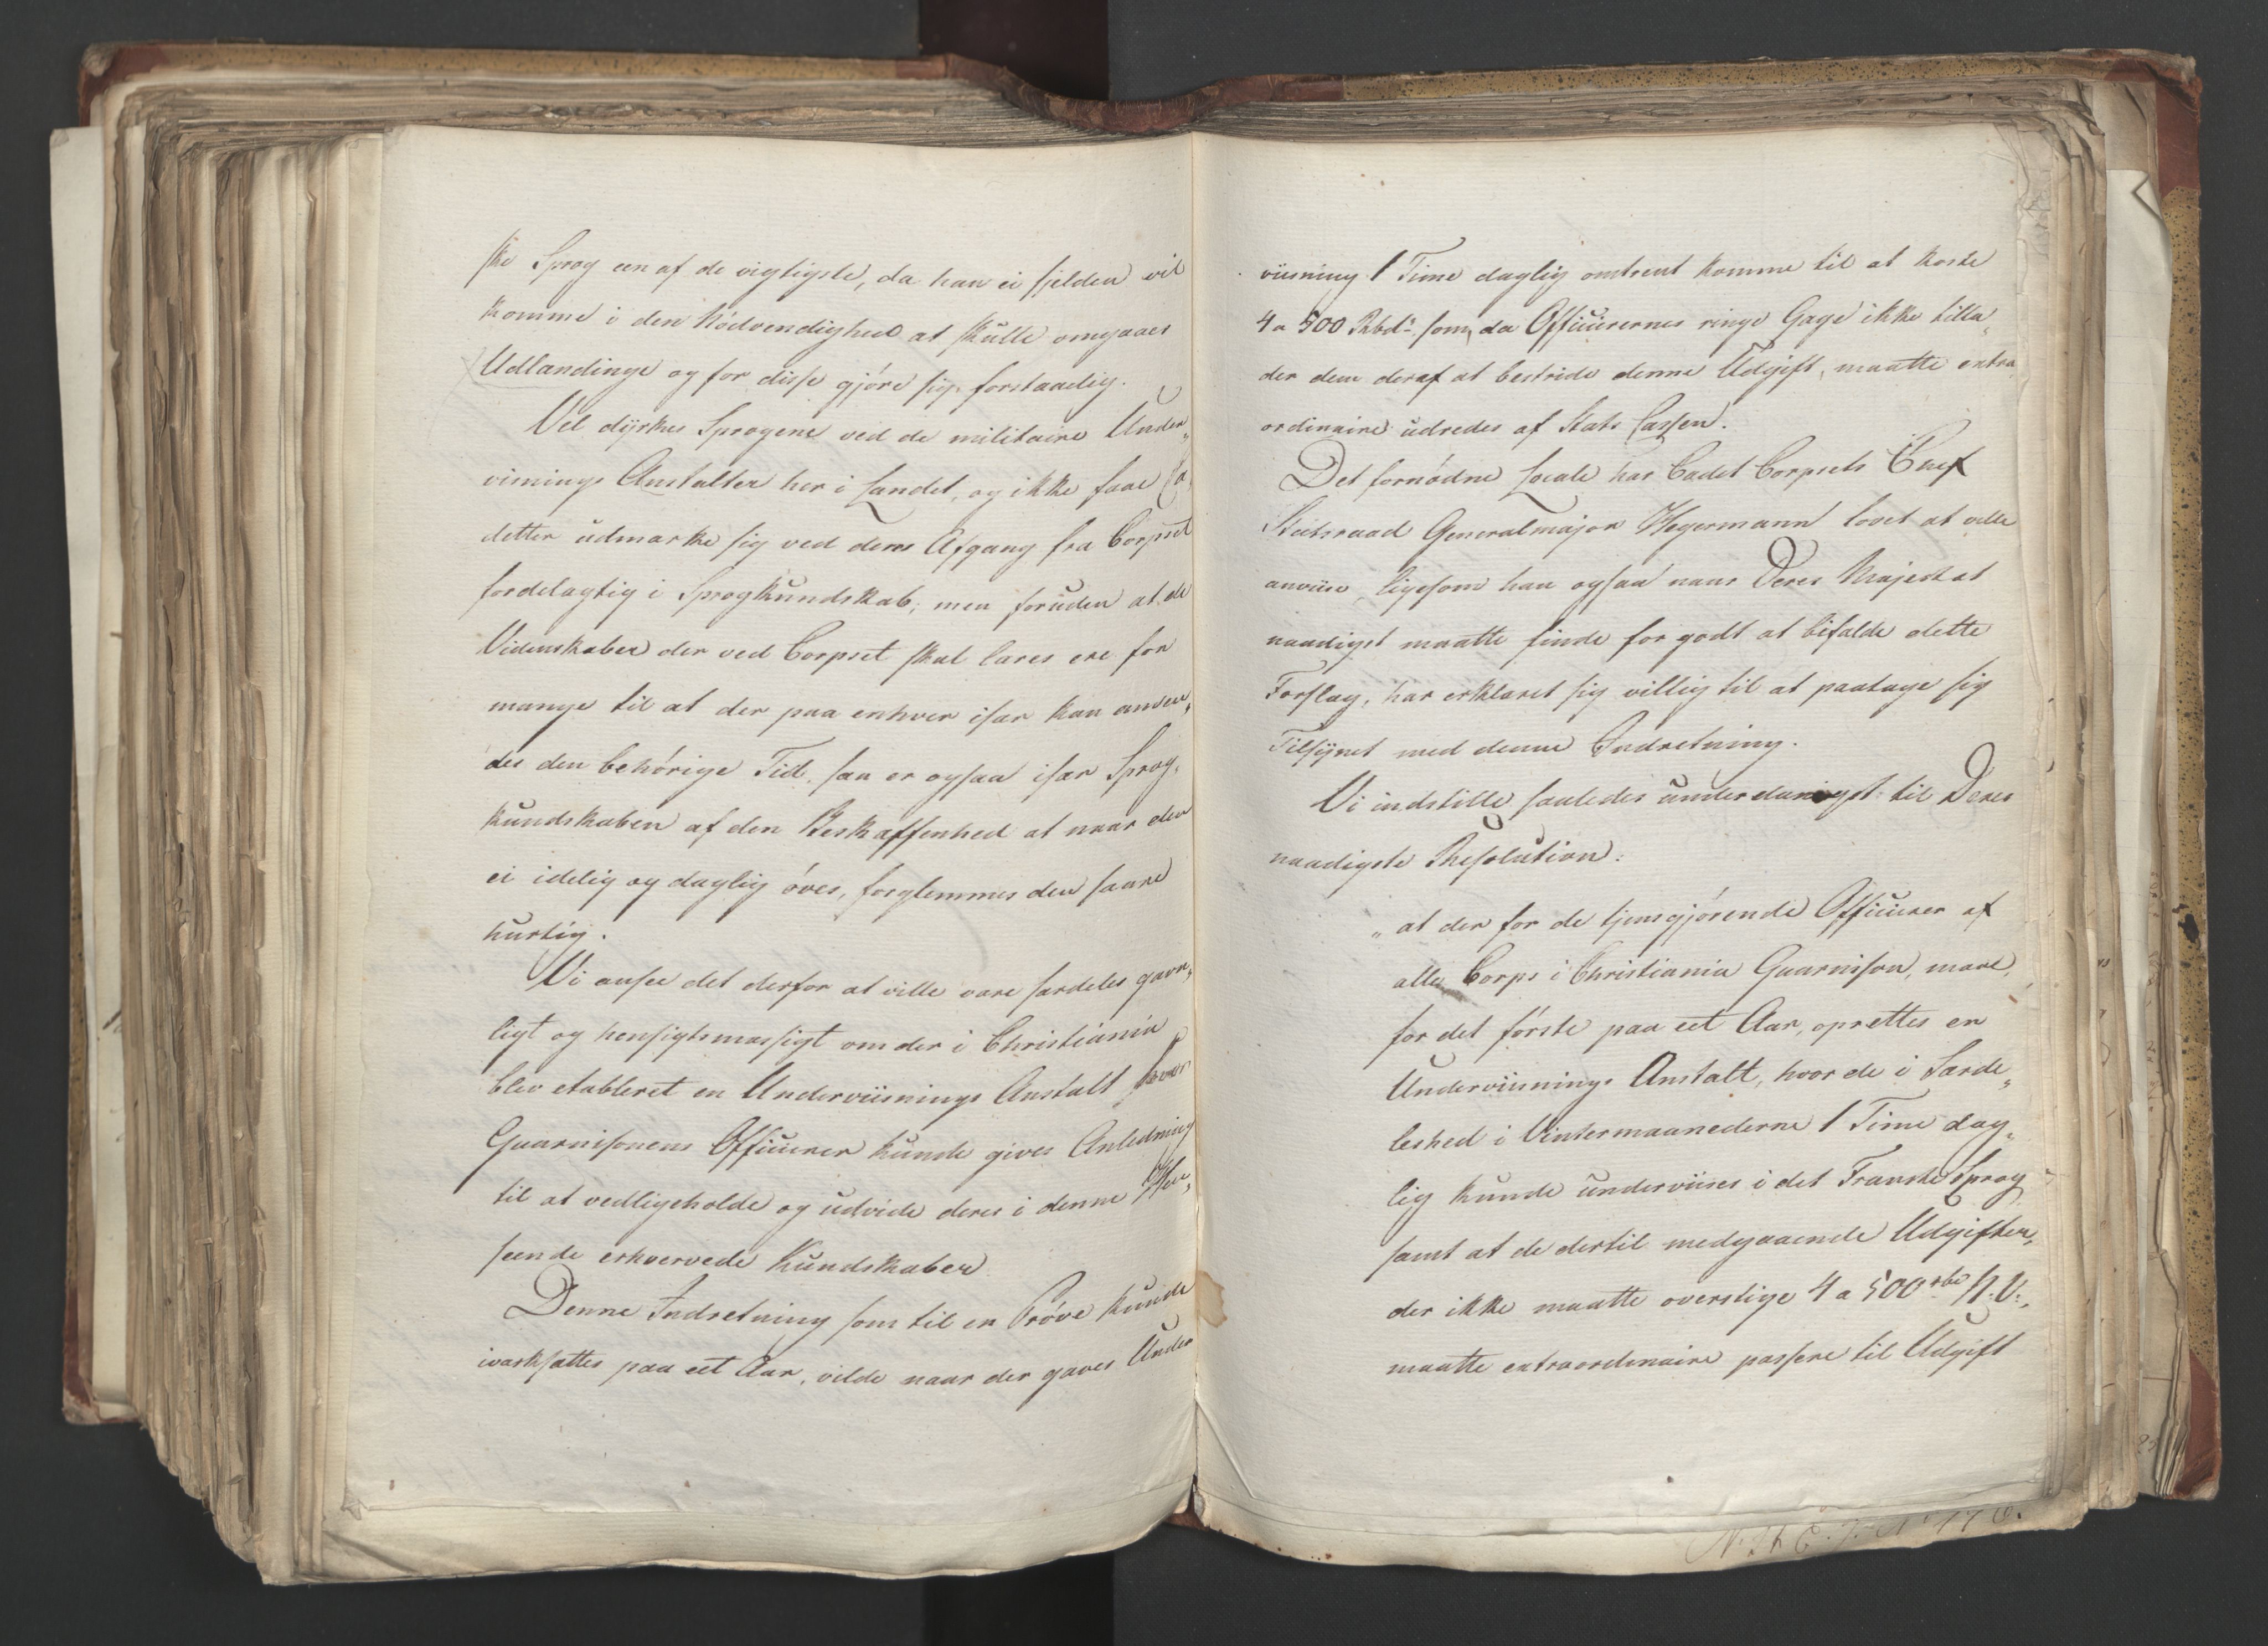 ske Sprog een af de vigtigste, da han ei sjelden vil
komme i den Nödvendighed at skulle omgaaes
Udlændinge og for disse gjöre sig forstaaelig.
Vel dÿrkes Sprogene ved de militaire Under„
visnings Anstalter her i Landet, og ikke faae Ca„
detter udmærke sig ved deres Afgang fra Corpset
fordelagtig i Sprogkundskab; men foruden at de
Videnskaber der ved Corpset skal læres ere for
mange til at der paa enhver især kan anven„
des den behörige Tid, saa er ogsaa især Sprog„
kundskaben af den Beskaffenhed at naar den
ei idelig og daglig öves, forglemmes den saare
hurtig.
Vi ansee det derfor at ville være særdeles gavn„
ligt og hensigtsmæssigt om der i Christiania
blev etableret en Underviisnings Anstalt hvor
Guarnisonens Officierer kunde gives Anledning
til at vedligeholde og udvide deres i denne Hen„
seende erhvervede Kundskaber.
Denne Indretning som til en Pröve kunde
iværksættes paa eet Aar, vilde naar der gaves Under
viisning 1 Time daglig omtrent komme til at koste
4 a 500 Rbdr som, da Officierernes ringe Gage ikke tilla„
der dem deraf at bestride denne Udgift, maatte extra
ordinaire udredes af Stats Cassen.
Det fornödne Locale har Cadet Corpsets Chef
Statsraad Generalmajor Hegermann lovet at ville
anviise, ligesom han ogsaa naar Deres Majestæt
naadigst maatte finde for godt at bifalde dette
Forslag, har erklæret sig villig til at paatage sig
Tilsÿnet med denne Indretning.
Vi indstille saaledes underdanigst til Deres
naadigste Resolution:
„at der for de tjenstgjörende Officierer af
alle Corps i Christiania Guarnison, maae,
for det förste paa eet Aar, oprettes en
Underviisnings Anstalt, hvor de i Særde„
leshed i Vintermaanederne 1 Time dag„
lig kunde underviises i det Franske Sprog
samt at de dertil medgaaende Udgifter,
der ikke maatte overstige 4 a 500 rbd N: V:,
maatte extraordinaire passere til Udgift